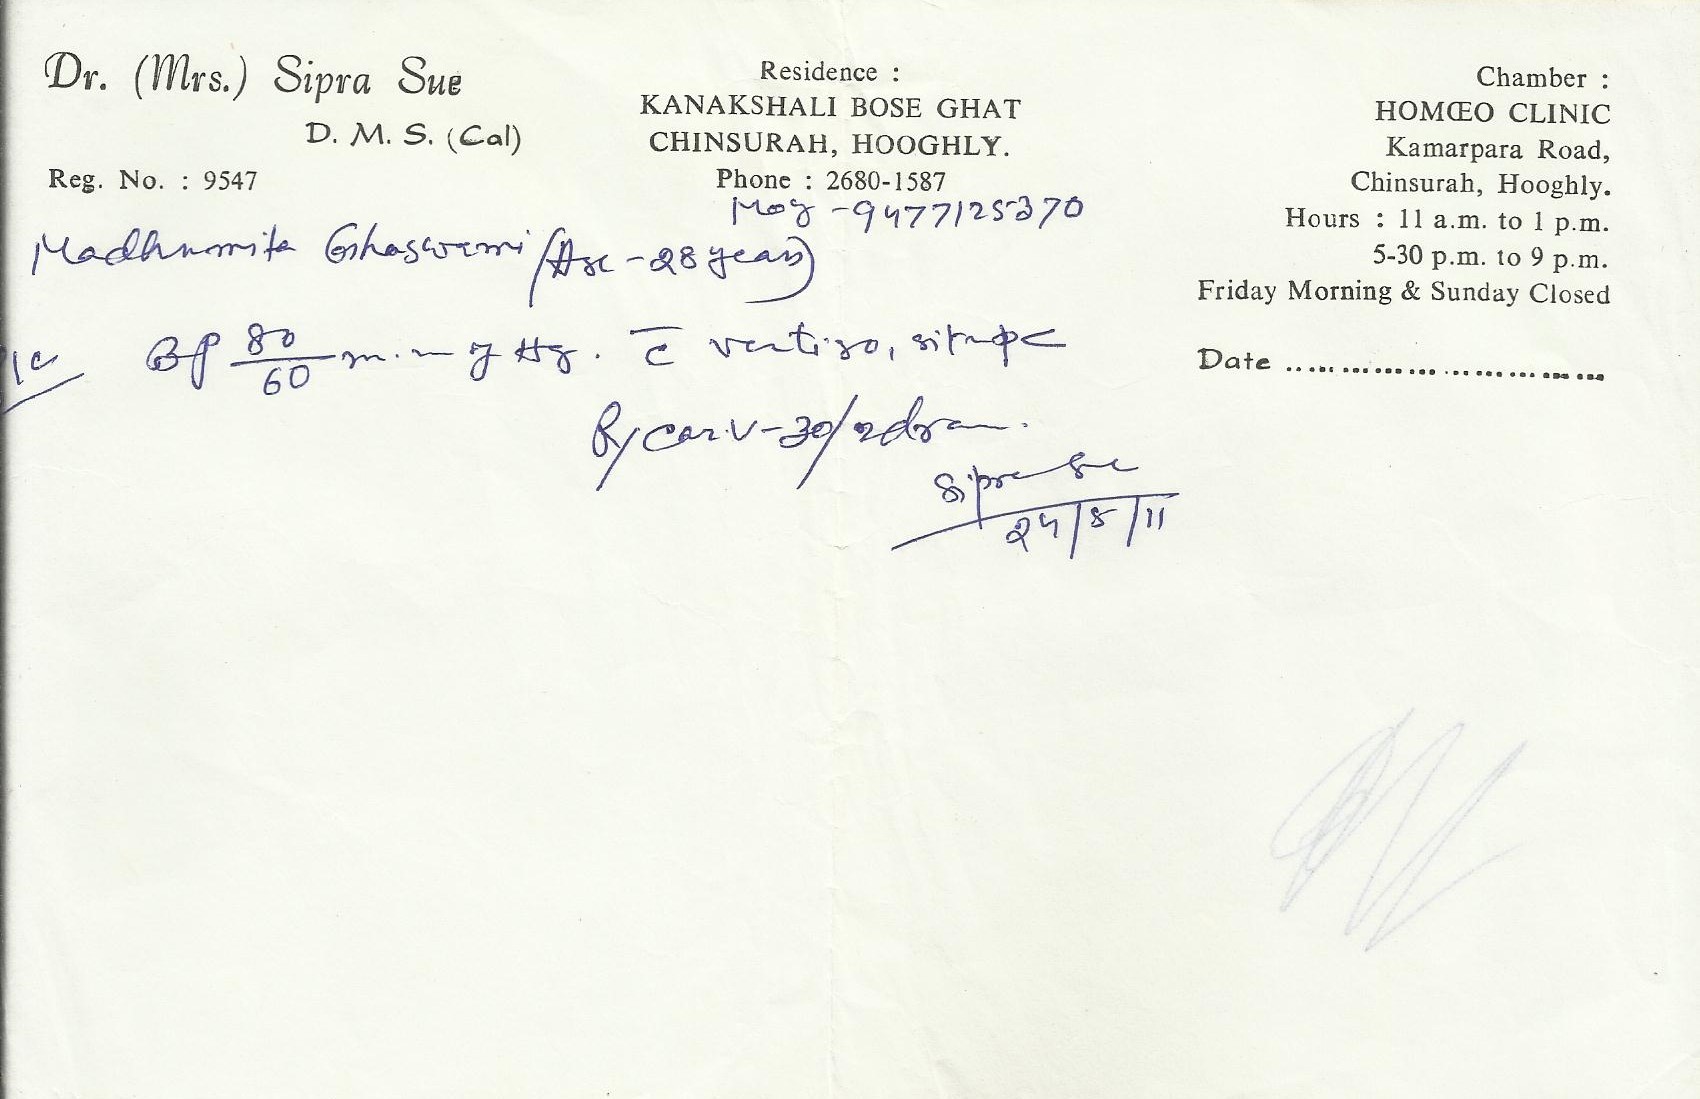 Dr. (Mrs.) Sipra Sue
D. M. S. (Cal)
Reg. No. : 9547
Residence :
KANAKSHALI BOSE GHAT
CHINSURAH, HOOGHLY.
Phone : 2680-1587
9477125370
Chamber :
HOMŒO CLINIC
Kamarpara Road,
Chinsurah, Hooghly.
Hours : 11 a.m. to 1 p.m.
5-30 p.m. to 9 p.m.
Friday Morning & Sunday Closed
Date ..............................
Madhumita Ghoswami (Age - 28 years)
BP 80/60 m.m of Hg. c̄ vertigo,
R/ Car.V-30/2dram.
Sipra Sue
24/5/11